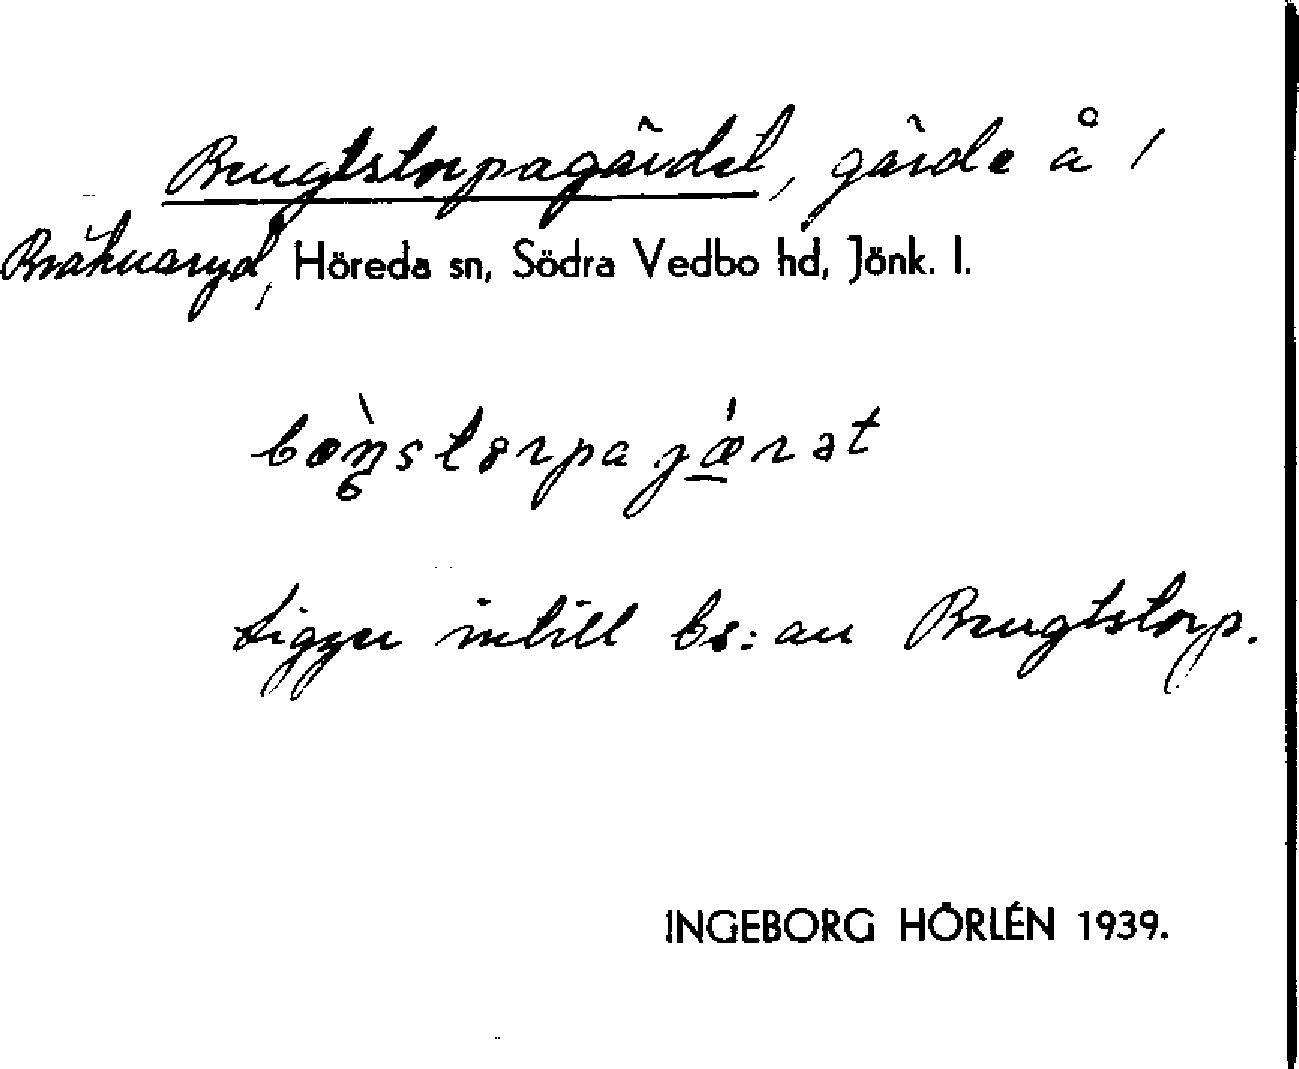 Bengtstorpagärdet, gärde å /
Bräknaryd, Höreda sn, Södra Vedbo hd, Jönk. l.
Ligger intill bs:an Bengtstorp.
INGEBORG HÖRLÉN 1939.